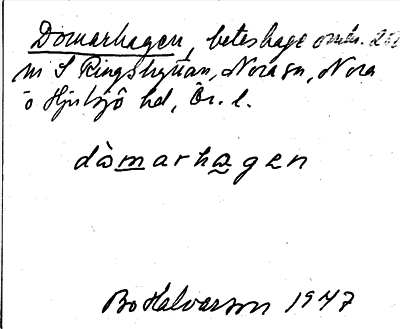 Domarhagen, beteshage områ. 200
m S Ringshyttan, Nora sn, Nora
o Hjulsjö hd, Ör. l.
dòmarhagen
Bo Halvarson 1947